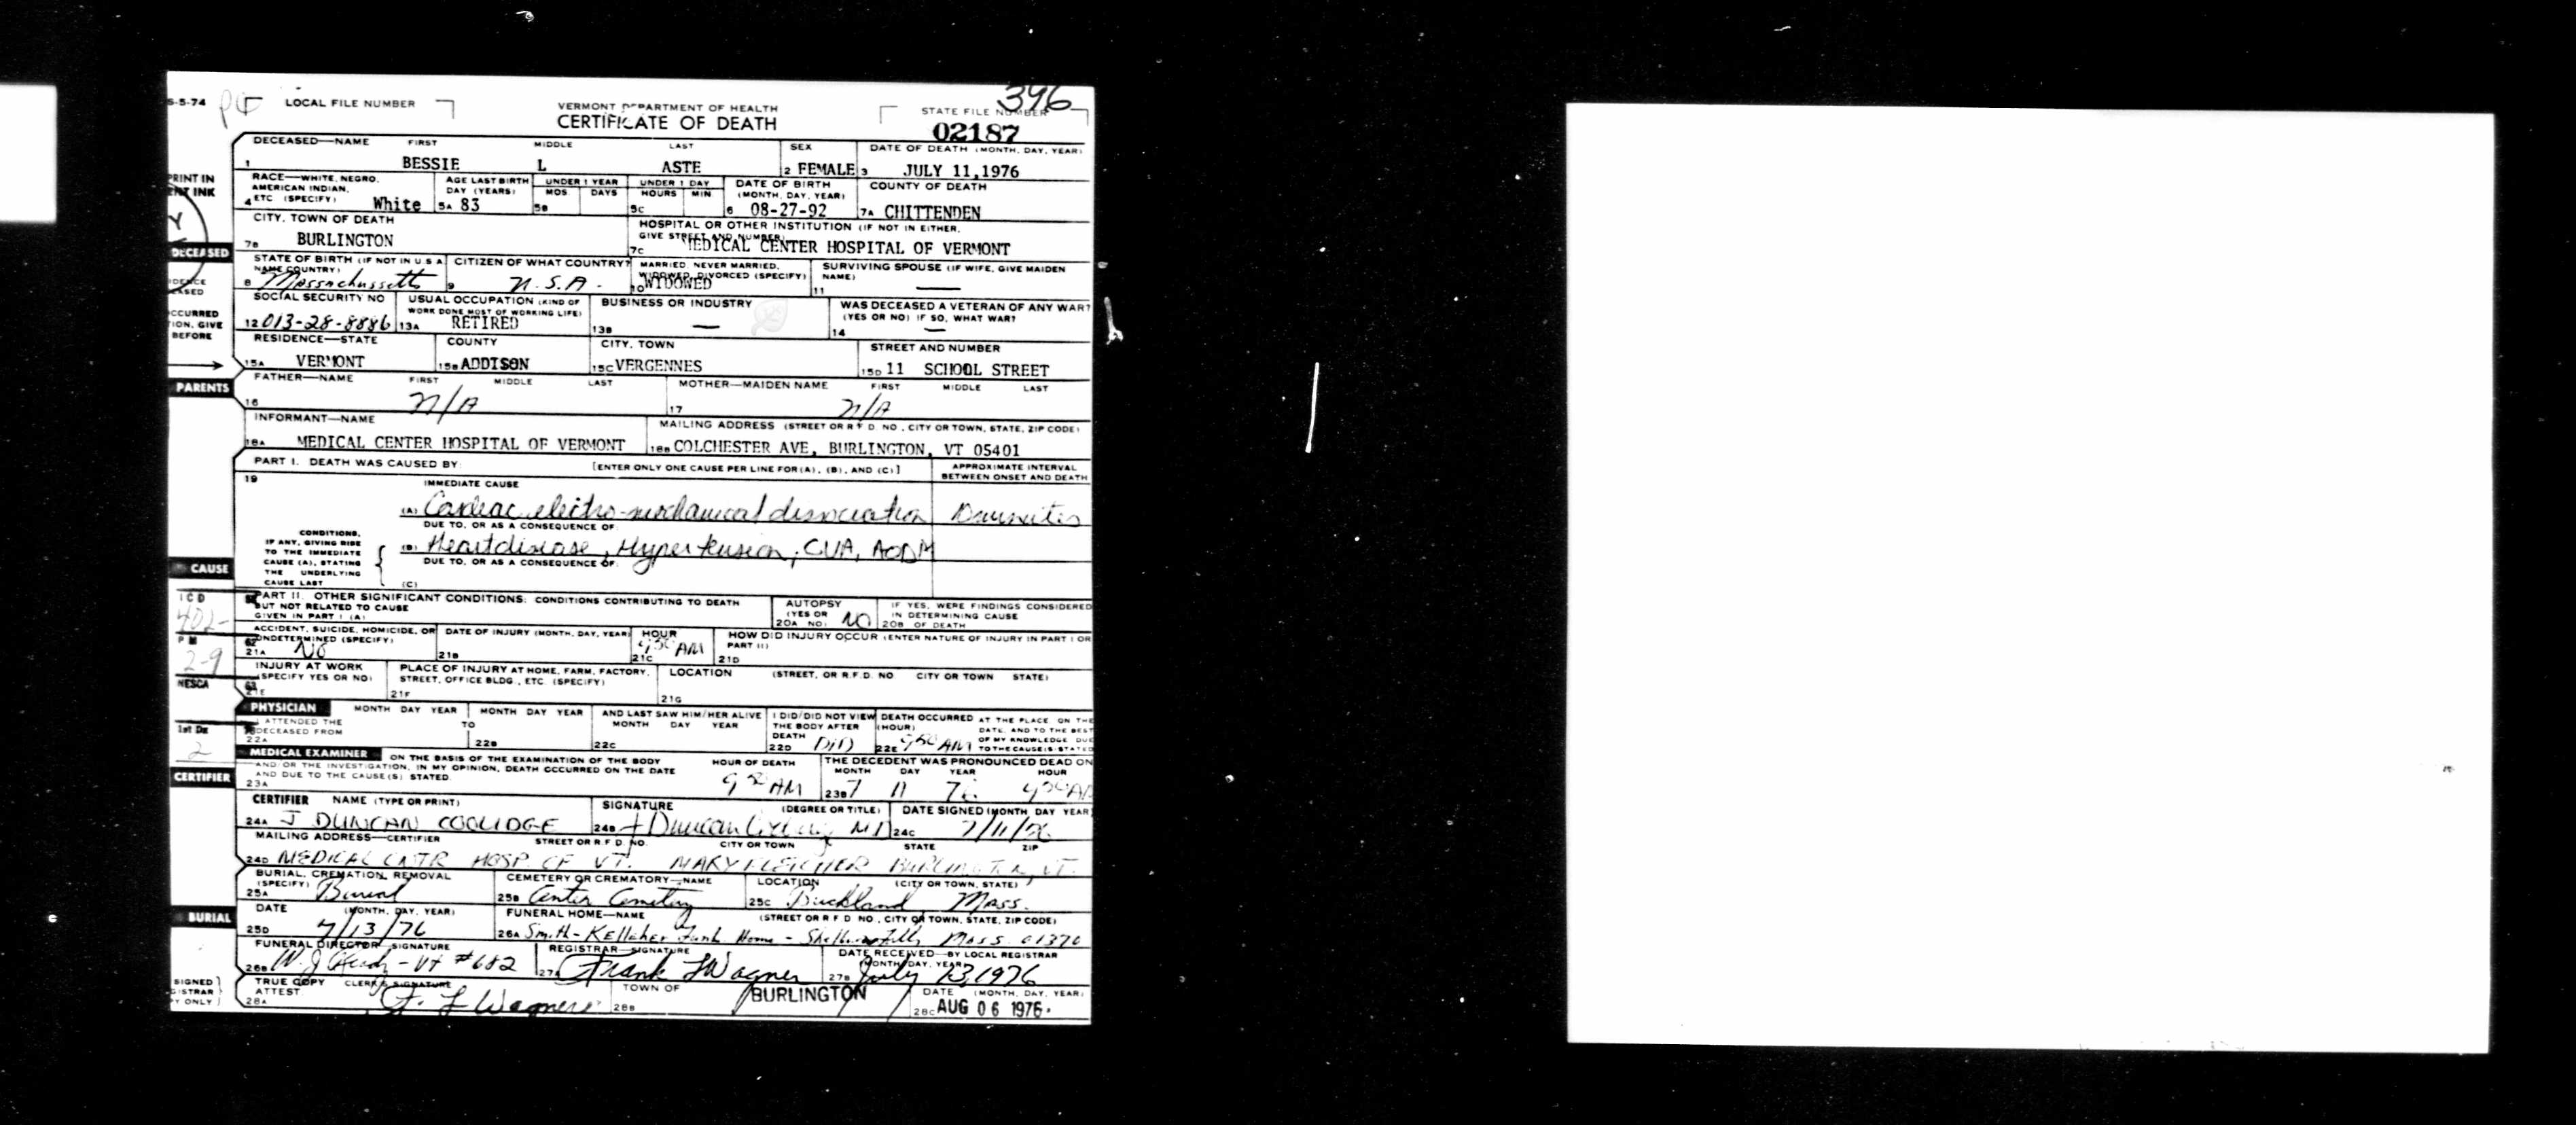 396
5-5-74 LOCAL FILE NUMBER VERMONT DEPARTMENT OF HEALTH STATE FILE NUMBER
CERTIFICATE OF DEATH 02187
DECEASED—NAME FIRST MIDDLE LAST SEX DATE OF DEATH (MONTH, DAY, YEAR)
1 BESSIE L ASTE 2 FEMALE 3 JULY 11,1976
PRINT IN RACE—WHITE, NEGRO, AGE LAST BIRTH UNDER 1 YEAR UNDER 1 DAY DATE OF BIRTH COUNTY OF DEATH
INK AMERICAN INDIAN, DAY (YEARS) MOS. DAYS HOURS MIN (MONTH, DAY, YEAR)
4 ETC (SPECIFY) White 5A 83 5B 5C 6 08-27-92 7A CHITTENDEN
CITY, TOWN OF DEATH HOSPITAL OR OTHER INSTITUTION (IF NOT IN EITHER,
GIVE STREET AND NUMBER)
7B BURLINGTON 7C MEDICAL CENTER HOSPITAL OF VERMONT
DECEASED
STATE OF BIRTH (IF NOT IN U.S.A. CITIZEN OF WHAT COUNTRY? MARRIED, NEVER MARRIED, SURVIVING SPOUSE (IF WIFE, GIVE MAIDEN
NAME COUNTRY) WIDOWED, DIVORCED (SPECIFY) NAME)
8 Massachussetts 9 U.S.A. 10 WIDOWED 11 —
SOCIAL SECURITY NO USUAL OCCUPATION (KIND OF BUSINESS OR INDUSTRY WAS DECEASED A VETERAN OF ANY WAR?
WORK DONE MOST OF WORKING LIFE) (YES OR NO) IF SO, WHAT WAR?
12 013-28-8886 13A RETIRED 13B — 14 —
CCURRED
TION, GIVE
BEFORE
RESIDENCE—STATE COUNTY CITY, TOWN STREET AND NUMBER
15A VERMONT 15B ADDISON 15C VERGENNES 15D 11 SCHOOL STREET
PARENTS FATHER—NAME FIRST MIDDLE LAST MOTHER—MAIDEN NAME FIRST MIDDLE LAST
16 N/A 17 N/A
INFORMANT—NAME MAILING ADDRESS (STREET OR R F D. NO., CITY OR TOWN, STATE, ZIP CODE)
18A MEDICAL CENTER HOSPITAL OF VERMONT 18B COLCHESTER AVE, BURLINGTON, VT 05401
PART I. DEATH WAS CAUSED BY: [ENTER ONLY ONE CAUSE PER LINE FOR (A), (B), AND (C)] APPROXIMATE INTERVAL
BETWEEN ONSET AND DEATH
19 IMMEDIATE CAUSE
(A) Cardiac electro-mechanical dissociation
DUE TO, OR AS A CONSEQUENCE OF:
CONDITIONS,
IF ANY, GIVING RISE
TO THE IMMEDIATE
CAUSE (A), STATING
THE UNDERLYING
CAUSE LAST
(B) Heart disease, Hypertension, CVA, AODM
DUE TO, OR AS A CONSEQUENCE OF:
(C)
CAUSE
ICD
402-
PART II. OTHER SIGNIFICANT CONDITIONS: CONDITIONS CONTRIBUTING TO DEATH AUTOPSY IF YES, WERE FINDINGS CONSIDERED
BUT NOT RELATED TO CAUSE (YES OR IN DETERMINING CAUSE
GIVEN IN PART I (A) 20A NO) NO 20B OF DEATH
PM
2-9
ACCIDENT, SUICIDE, HOMICIDE, OR DATE OF INJURY (MONTH, DAY, YEAR) HOUR HOW DID INJURY OCCUR (ENTER NATURE OF INJURY IN PART I OR
UNDETERMINED (SPECIFY) PART II)
21A NO 21B 21C 9:50 AM 21D
NESCA
INJURY AT WORK PLACE OF INJURY AT HOME, FARM, FACTORY, LOCATION (STREET, OR R.F.D. NO CITY OR TOWN STATE)
(SPECIFY YES OR NO) STREET, OFFICE BLDG., ETC (SPECIFY)
21E 21F 21G
PHYSICIAN MONTH DAY YEAR MONTH DAY YEAR AND LAST SAW HIM/HER ALIVE I DID/DID NOT VIEW DEATH OCCURRED AT THE PLACE ON THE
I ATTENDED THE TO MONTH DAY YEAR THE BODY AFTER (HOUR) DATE, AND TO THE BEST
DECEASED FROM DEATH OF MY KNOWLEDGE DUE
22A 22B 22C 22D DID 22E 9:50 AM TO THE CAUSE(S) STATED
1st Dx
2
MEDICAL EXAMINER ON THE BASIS OF THE EXAMINATION OF THE BODY HOUR OF DEATH THE DECEDENT WAS PRONOUNCED DEAD ON
AND/OR THE INVESTIGATION, IN MY OPINION, DEATH OCCURRED ON THE DATE MONTH DAY YEAR HOUR
AND DUE TO THE CAUSE(S) STATED.
23A 9 50 AM 23B 7 11 76 9 50 AM
CERTIFIER
CERTIFIER NAME (TYPE OR PRINT) SIGNATURE (DEGREE OR TITLE) DATE SIGNED (MONTH DAY YEAR)
24A J DUNCAN COOLIDGE 24B J Duncan Coolidge MD 24C 7/11/76
MAILING ADDRESS—CERTIFIER STREET OR R.F.D. NO. CITY OR TOWN STATE ZIP
24D MEDICAL CNTR HOSP. OF VT. MARY FLETCHER BURLINGTON, VT.
BURIAL, CREMATION, REMOVAL CEMETERY OR CREMATORY—NAME LOCATION (CITY OR TOWN, STATE)
(SPECIFY)
25A Burial 25B Center Cemetery 25C Buckland Mass.
BURIAL
DATE (MONTH, DAY, YEAR) FUNERAL HOME—NAME (STREET OR R F D NO., CITY OR TOWN, STATE, ZIP CODE)
25D 7/13/76 26A Smith-Kelleher Funl Home - Shelburne Falls Mass 01370
FUNERAL DIRECTOR SIGNATURE REGISTRAR—SIGNATURE DATE RECEIVED—BY LOCAL REGISTRAR
(MONTH, DAY, YEAR)
26B W. J. - Vt #682 27A Frank J Wagner 27B July 13, 1976
SIGNED
ISTRAR
Y ONLY
TRUE COPY CLERK'S SIGNATURE TOWN OF DATE (MONTH, DAY, YEAR)
ATTEST:
28A F. J Wagner 28B BURLINGTON 28C AUG 06 1976